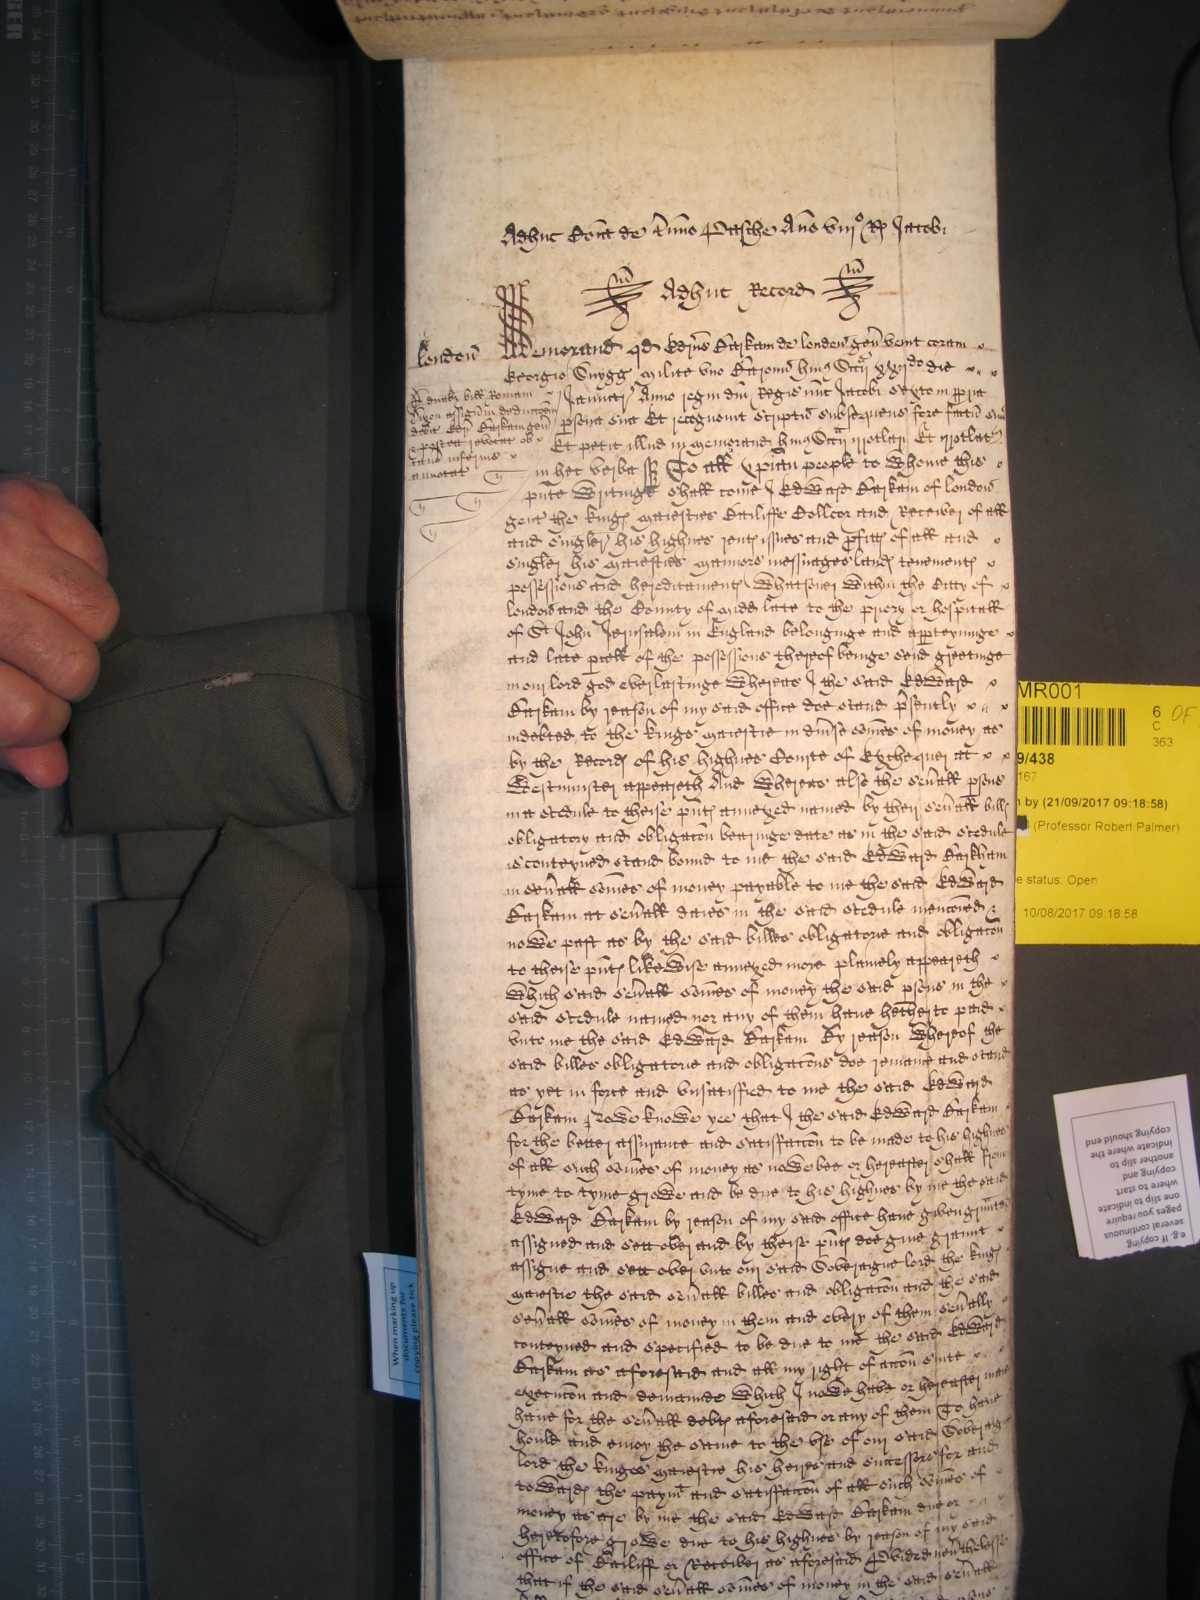 Adhuc Com̃ de t̃mo Pasche Anno viijo R Jacobi
Adhuc Record
london
Memorand qd Edrus Barkam de london gen̄ venit coram
Georgio Snygg milite vno Baronū hui⁹ Scc̄ij xxijdo die
Januarij Anno regni dn̄i Regis nunc Jacobi sexto in ppria
psona sua Et recognovit scriptū subsequens fore factū suū
Et petit illud in memorand hui⁹ Scc̄ij irrotlari Et irrotlatr
in hec verba To all xpian people to whome this
pn̄te writinge shall come I Edward Barkam of london
gent the kings maiesties Bailiffe Collcor and Receiver of all
and singler his highnes rents issues and profitts of all and
singler his maiesties mannors messuages lands tenements
possessions and hereditaments whatsoever within the Citty of
london and the County of Midd late to the priory or hospitall
of St John Jerusalem in England belonginge and apperteyninge
and late pcell of the possessions thereof beinge send greetinge
in our lord god everlastinge Whereas I the said Edward
Barkam by reason of my said office doe stand pn̄sently
indebted to the kings maiestie in div̄se som̄es of money as
by the Records of his highnes Courte of Exchequer at
Westminster appeareth And Whereas also the sev̄all psons
in a scedule to theise pn̄ts annexed named by their sev̄all bills
obligatory and obligacōn bearinge date as in the said scedule
is conteyned stand bound to me the said Edward Barkham
in sev̄all som̄es of money payable to me the said Edward
Barkam at sev̄all daies in the said scedule mencōned
nowe past as by the said billes obligatorie and obligacōn
to theise pn̄ts likewise annexed more plainely appeareth
Which said sev̄all som̄es of money the said psons in the
said scedule named nor any of them have hetherto paid
vnto me the said Edward Barkam By reason whereof the
said billes obligatorie and obligacōns doe remaine and stand
as yet in force and vnsatisfied to me the said Edward
Barkam Nowe knowe yee that I the said Edward Barkam
for the better assurance and satisfaccōn to be made to his highnes
of all such som̄es of money as nowe bee or hereafter shall from
tyme to tyme growe and be due to his highnes by me the said
Edward Barkam by reason of my said office have given graunted
assigned and sett over and by theise pn̄ts doe give graunt
assigne and sett over vnto our said Soveraigne lord the kings
maiestie the said sev̄all billes and obligacōn and the said
sev̄all som̄es of money in them and every of them sev̄ally
conteyned and specified to be due to me the said Edward
Barkam as aforesaid and all my right of accōn suite
execucōn and demaunde which I nowe have or hereafter maie
have for the sev̄all debts aforesaid or any of them To have
hould and enioy the same to the vse of our said Soveraigne
lord the kinges maiestie his heires and successors for and
towards the paymt and satisfaccōn of all such som̄es of
money as are by me the said Edward Barkam due or
heretofore growe due to his highnes by reason of my said
office of Bailiff or Receiver as aforesaid Provided nev̄thelesse
that if the said sev̄all som̄es of money in the said sev̄all
MR001
6
C
363
9/438
167
by (21/09/2017 09:18:58)
(Professor Robert Palmer)
e status: Open
10/08/2017 09:18:58
e.g. If copying
several continuous
pages you require
one slip to indicate
where to start
copying and
another slip to
indicate where the
copying should end
When marking up
documents for
copying please tick